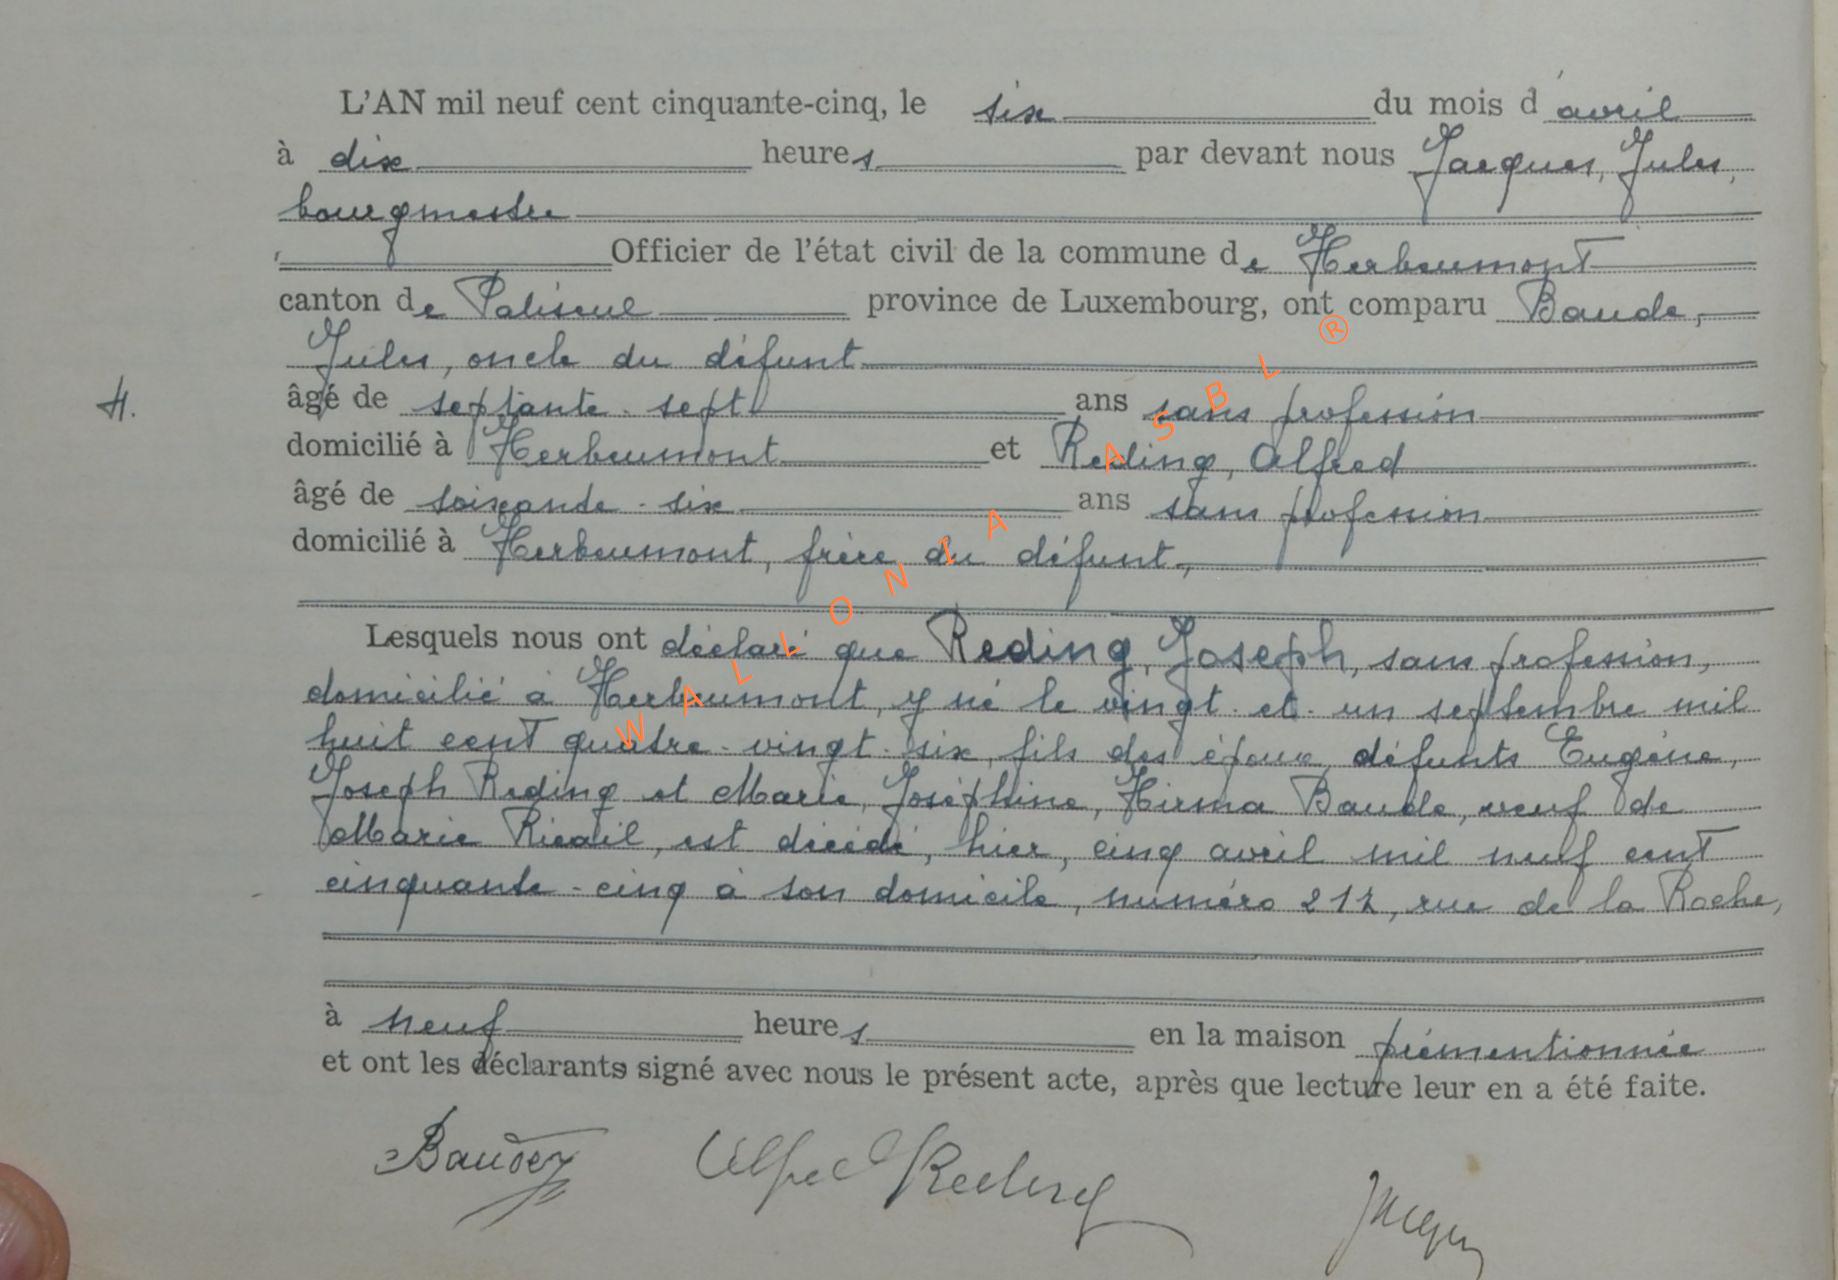 L'AN mil neuf cent cinquante-cinq, le six du mois d'avril
à dix heures par devant nous Jacques, Jules,
bourgmestre
Officier de l'état civil de la commune de Herbeumont
canton de Paliseul province de Luxembourg, ont comparu Baude,
Jules, oncle du défunt
âgé de septante-sept ans sans profession
4.
domicilié à Herbeumont et Reding, Alfred
âgé de soixante-six ans sans profession
domicilié à Herbeumont, frère du défunt,
Lesquels nous ont déclaré que Reding, Joseph, sans profession,
domicilié à Herbeumont, y né le vingt-et-un septembre mil
huit cent quatre-vingt-six, fils des époux défunts Eugène,
Joseph Reding et Marie, Joséphine, Hirma Baude, veuf de
Marie Ricail, est décédé, hier, cinq avril mil neuf cent
cinquante-cinq à son domicile, numéro 212, rue de la Roche,
à neuf heures en la maison prémentionnée
et ont les déclarants signé avec nous le présent acte, après que lecture leur en a été faite.
Alfred Reding
WALLONIA ASBL ®